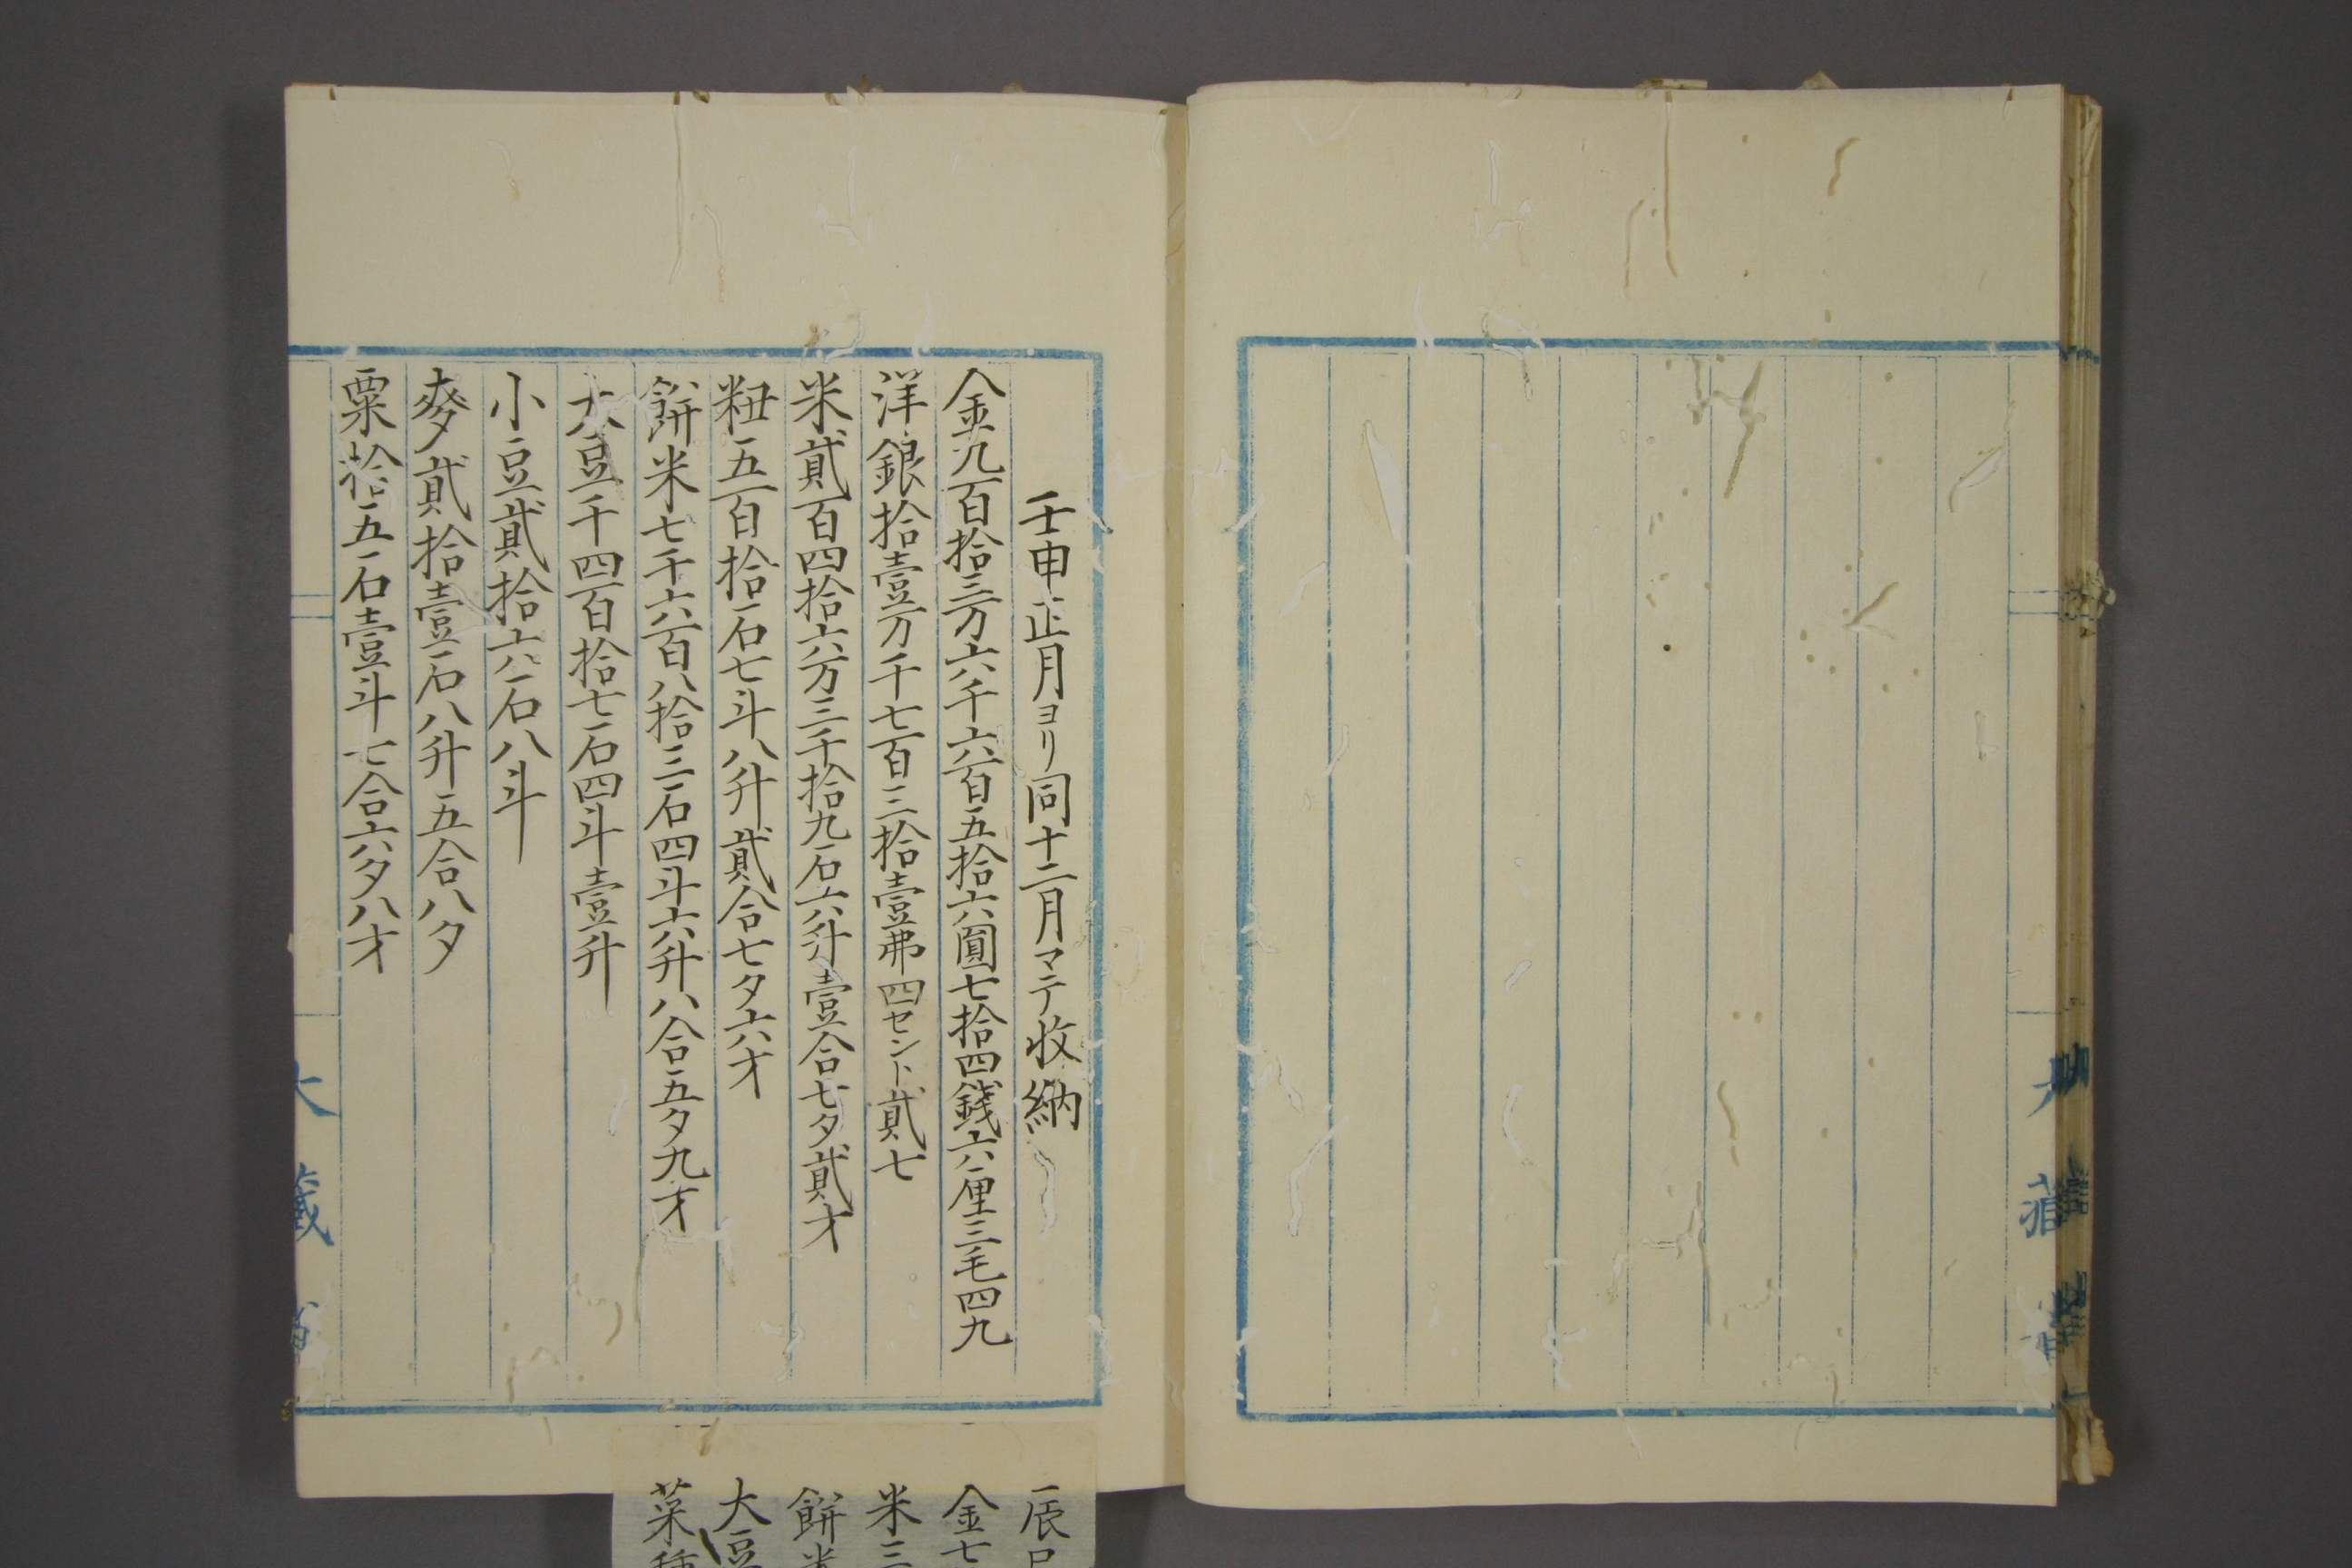 壬申正月ヨリ同十二月マテ收納
金九百拾三万六千六百五拾六圓七拾四錢六厘三毛四九
洋銀拾壹万千七百三拾壹弗四セント貳七
米貳百四拾六万三千拾九石六升壹合七夕貳才
粈五百拾石七斗八升貳合七夕六才
餅米七千六百八拾三石四斗六升八合五夕九才
大豆千四百拾七石四斗壹升
小豆貳拾六石八斗
麥貳拾壹石八升五合八夕
粟拾五石壹斗七合六夕八才
大藏省
辰巳
金七
米三
餅米
大豆
菜種